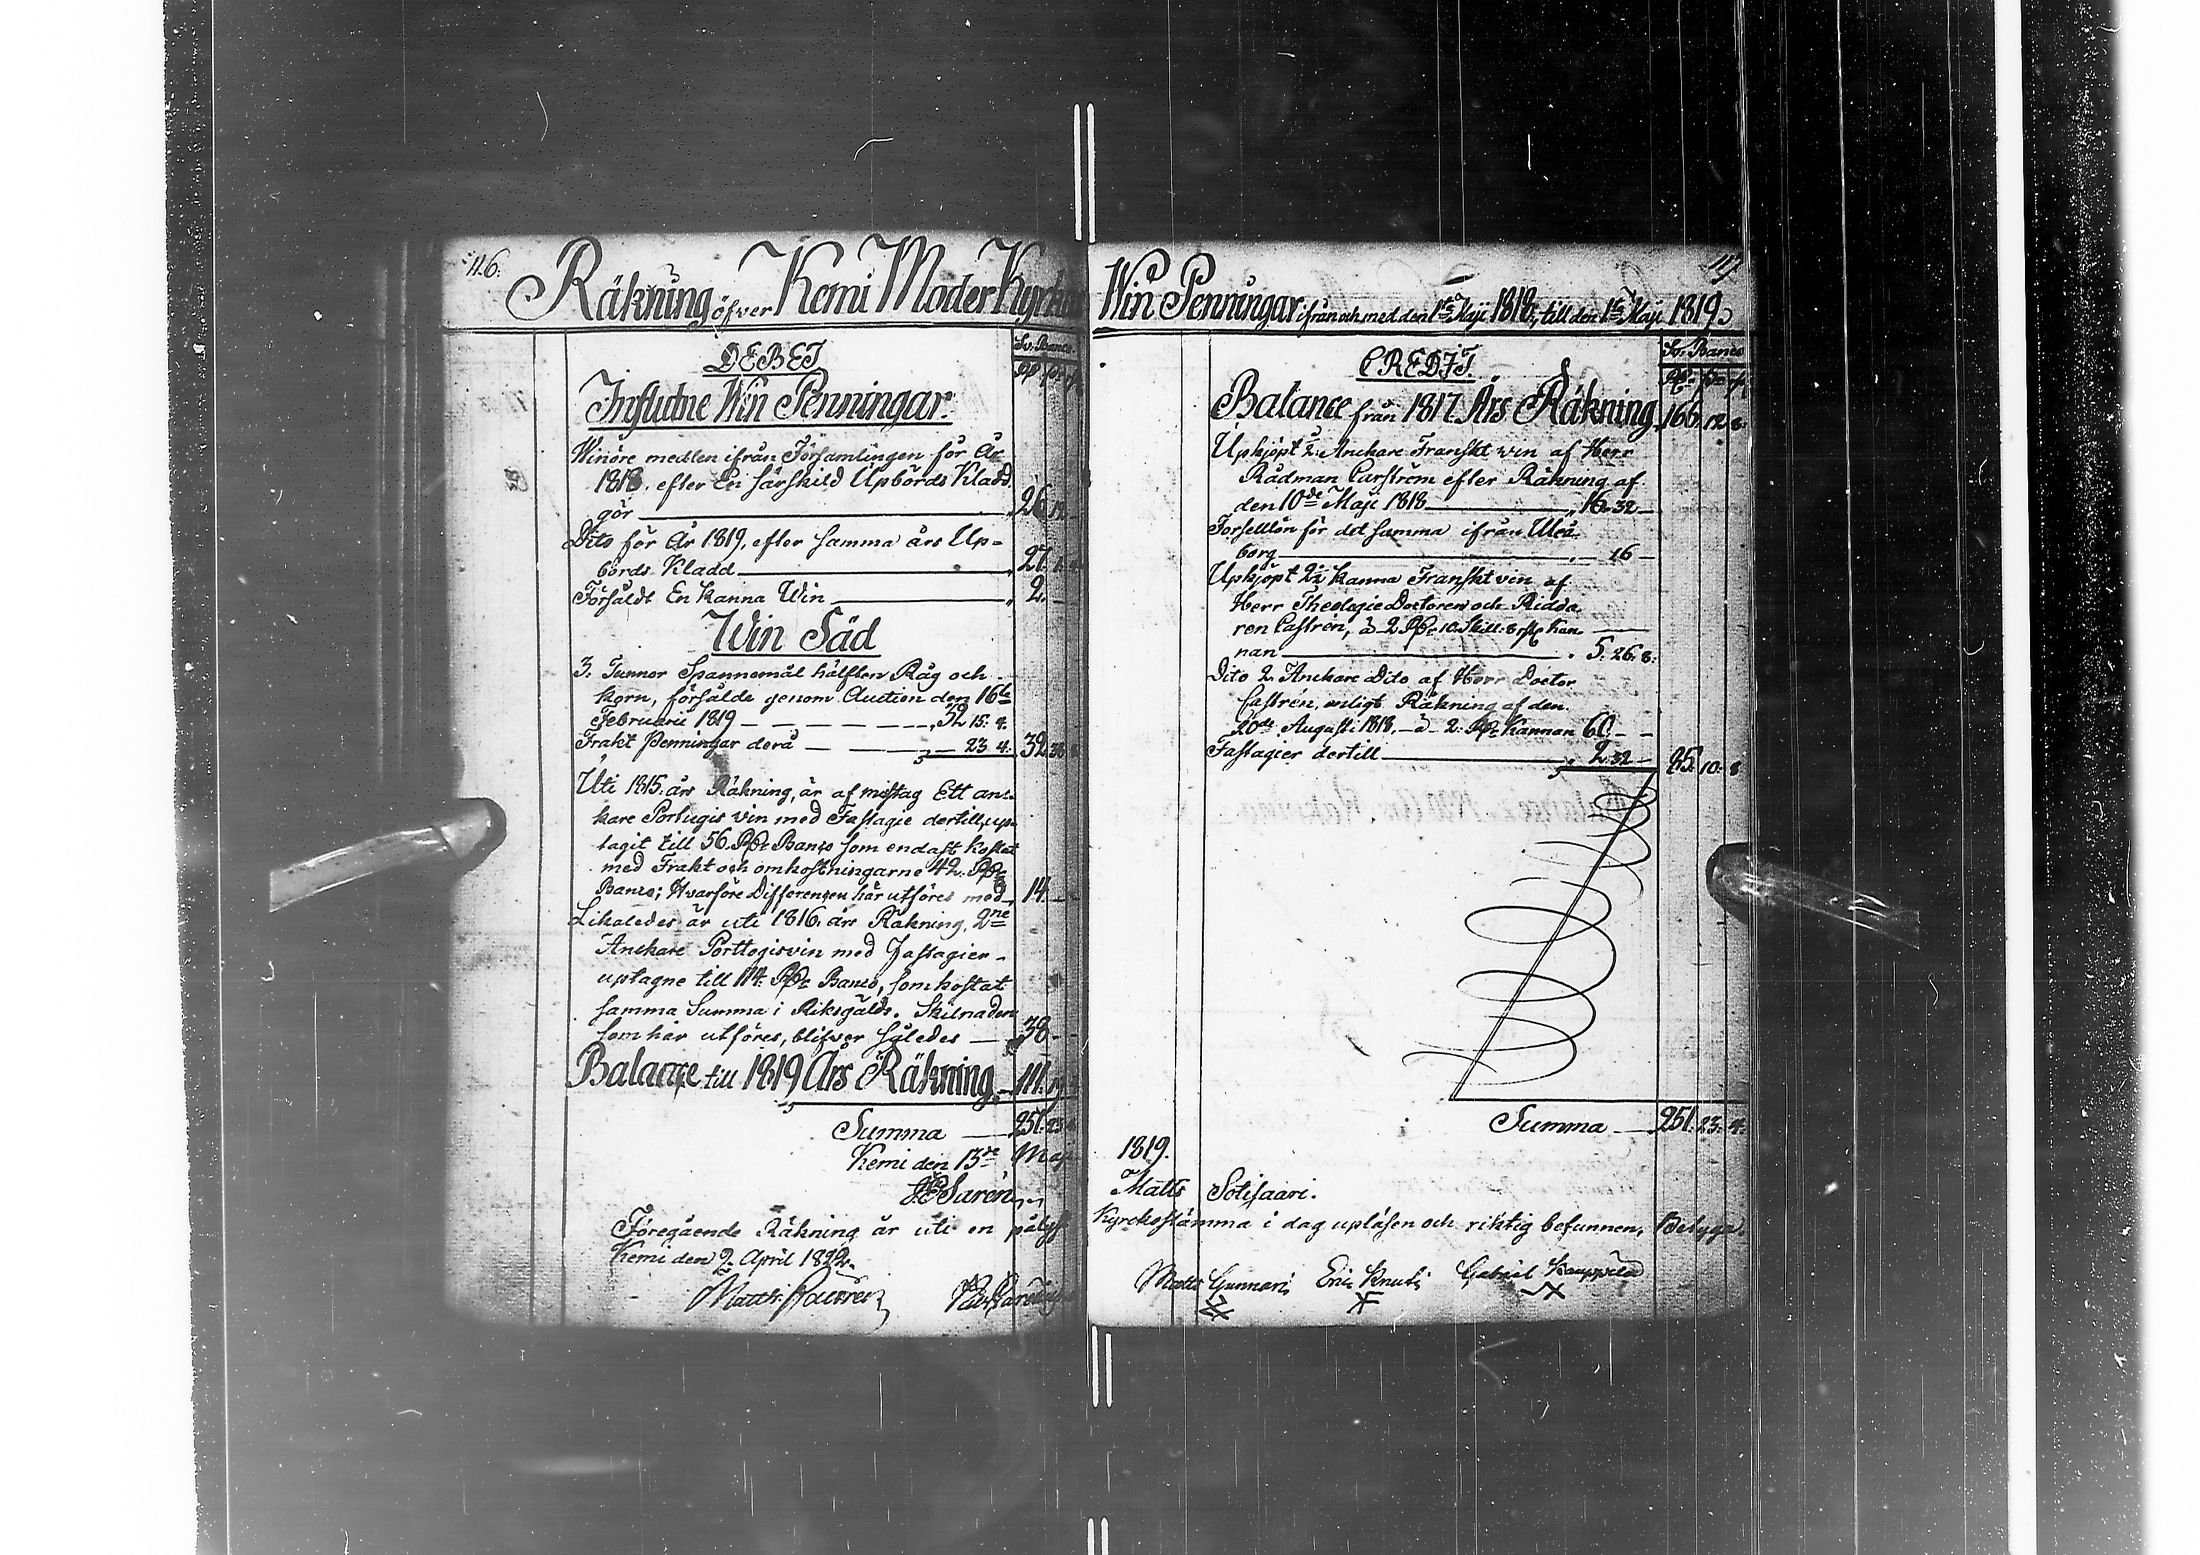 116.
Räkning öfver Kemi Moder Kyrko
DEBET
Sv. Banco
Influtne Win Penningar.
Winöre medlen ifrån Församlingen för År
1818, efter En särskild Upbörds Kladd,
gör 26. 12
Dito för År 1819, efter samma års Up-
börds Kladd 27.
Försåldt En Kanna Win 2.
Win Säd
3. Tunnor Spannemål hälften Råg och
Korn, försålde genom Auction den 16de
Februarii 1819 32 15. 4.
Frakt Penningar derå 23 4. 32. 38
Uti 1815. års Räkning, är af mistag Ett an-
kare Portugis vin med Fastagie dertill, up-
tagit till 56. Rdr Banco som endast kostat
med Frakt och omkostningarne 42. Rdr
Banco; Hvarföre Differencen här utföres med 14.
Likaledes är uti 1816. års Räkning, 2ne
Anckare Porttogisvin med Fastagier
uptagne till 114. Rdr Banco, som kostat
samma Summa i Riksgälds. Skilnaden
som här utföres, blifver således 38
Balance till 1819 Års Räkning 111. 19
Summa 251. 23
Kemi den 13de Maji
Sarén
Föregående Räkning är uti en pålyst
Kemi den 2. April 1822.
117.
Win Penningar ifrån och med den 1sta Maji 1818, till den 1sta Maji 1819.
CREDIT.
Sv. Banco
Balance från 1817 Års Räkning 166. 12 8.
Upkjöpt 1/2 Anckare Franskt win af Herr
Rådman Curström efter Räkning af
den 10de Maji 1818 16. 32
Forsellön för det samma ifrån Uleå-
borg 16
Upkjöpt 2 1/2 Kanna Franskt vin af
Herr Theologie Doctoren och Ridda-
ren Castrén, à 2 Rdr 10. Skill: 8 rst Kan-
nan 5. 26. 8.
Dito 2 Anckare Dito af Herr Doctor
Castrén, enligt Räkning af den
20de Augusti 1818, à 2. Rdr Kannan 60
Fastagier dertill 2 32 85. 10. 8
Summa 251. 23. 4.
1819.
Matts Sotisaari.
Kyrckostämma i dag upläsen och riktig befunnen, Betyga.
Matts Gunnari Eric Knuti Gabriel Kauppila